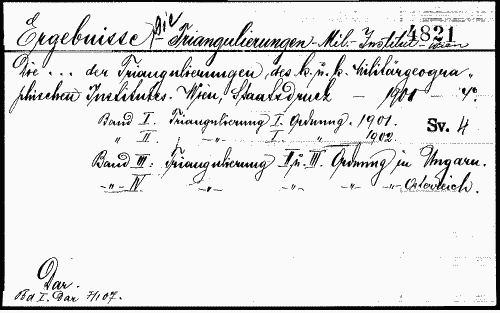 4821
Ergebnisse, Die - Triangulierungen - Mil. - Institut - Wien
Die ... der Triangulierungen des k. u. k. Militärgeogra„
phischen Institutes. Wien, Staatsdruck - 1901
Band I. Triangulierung I. Ordnung. 1901. Sv. 4
„ II. „ - „ - I. - „ 1902.
Band III: Triangulierung II u. III. Ordnung in Ungarn.
-„- IV -„- -„- -„- -„- Österreich.
Dar.
Bd I. Dar 7/1 07.